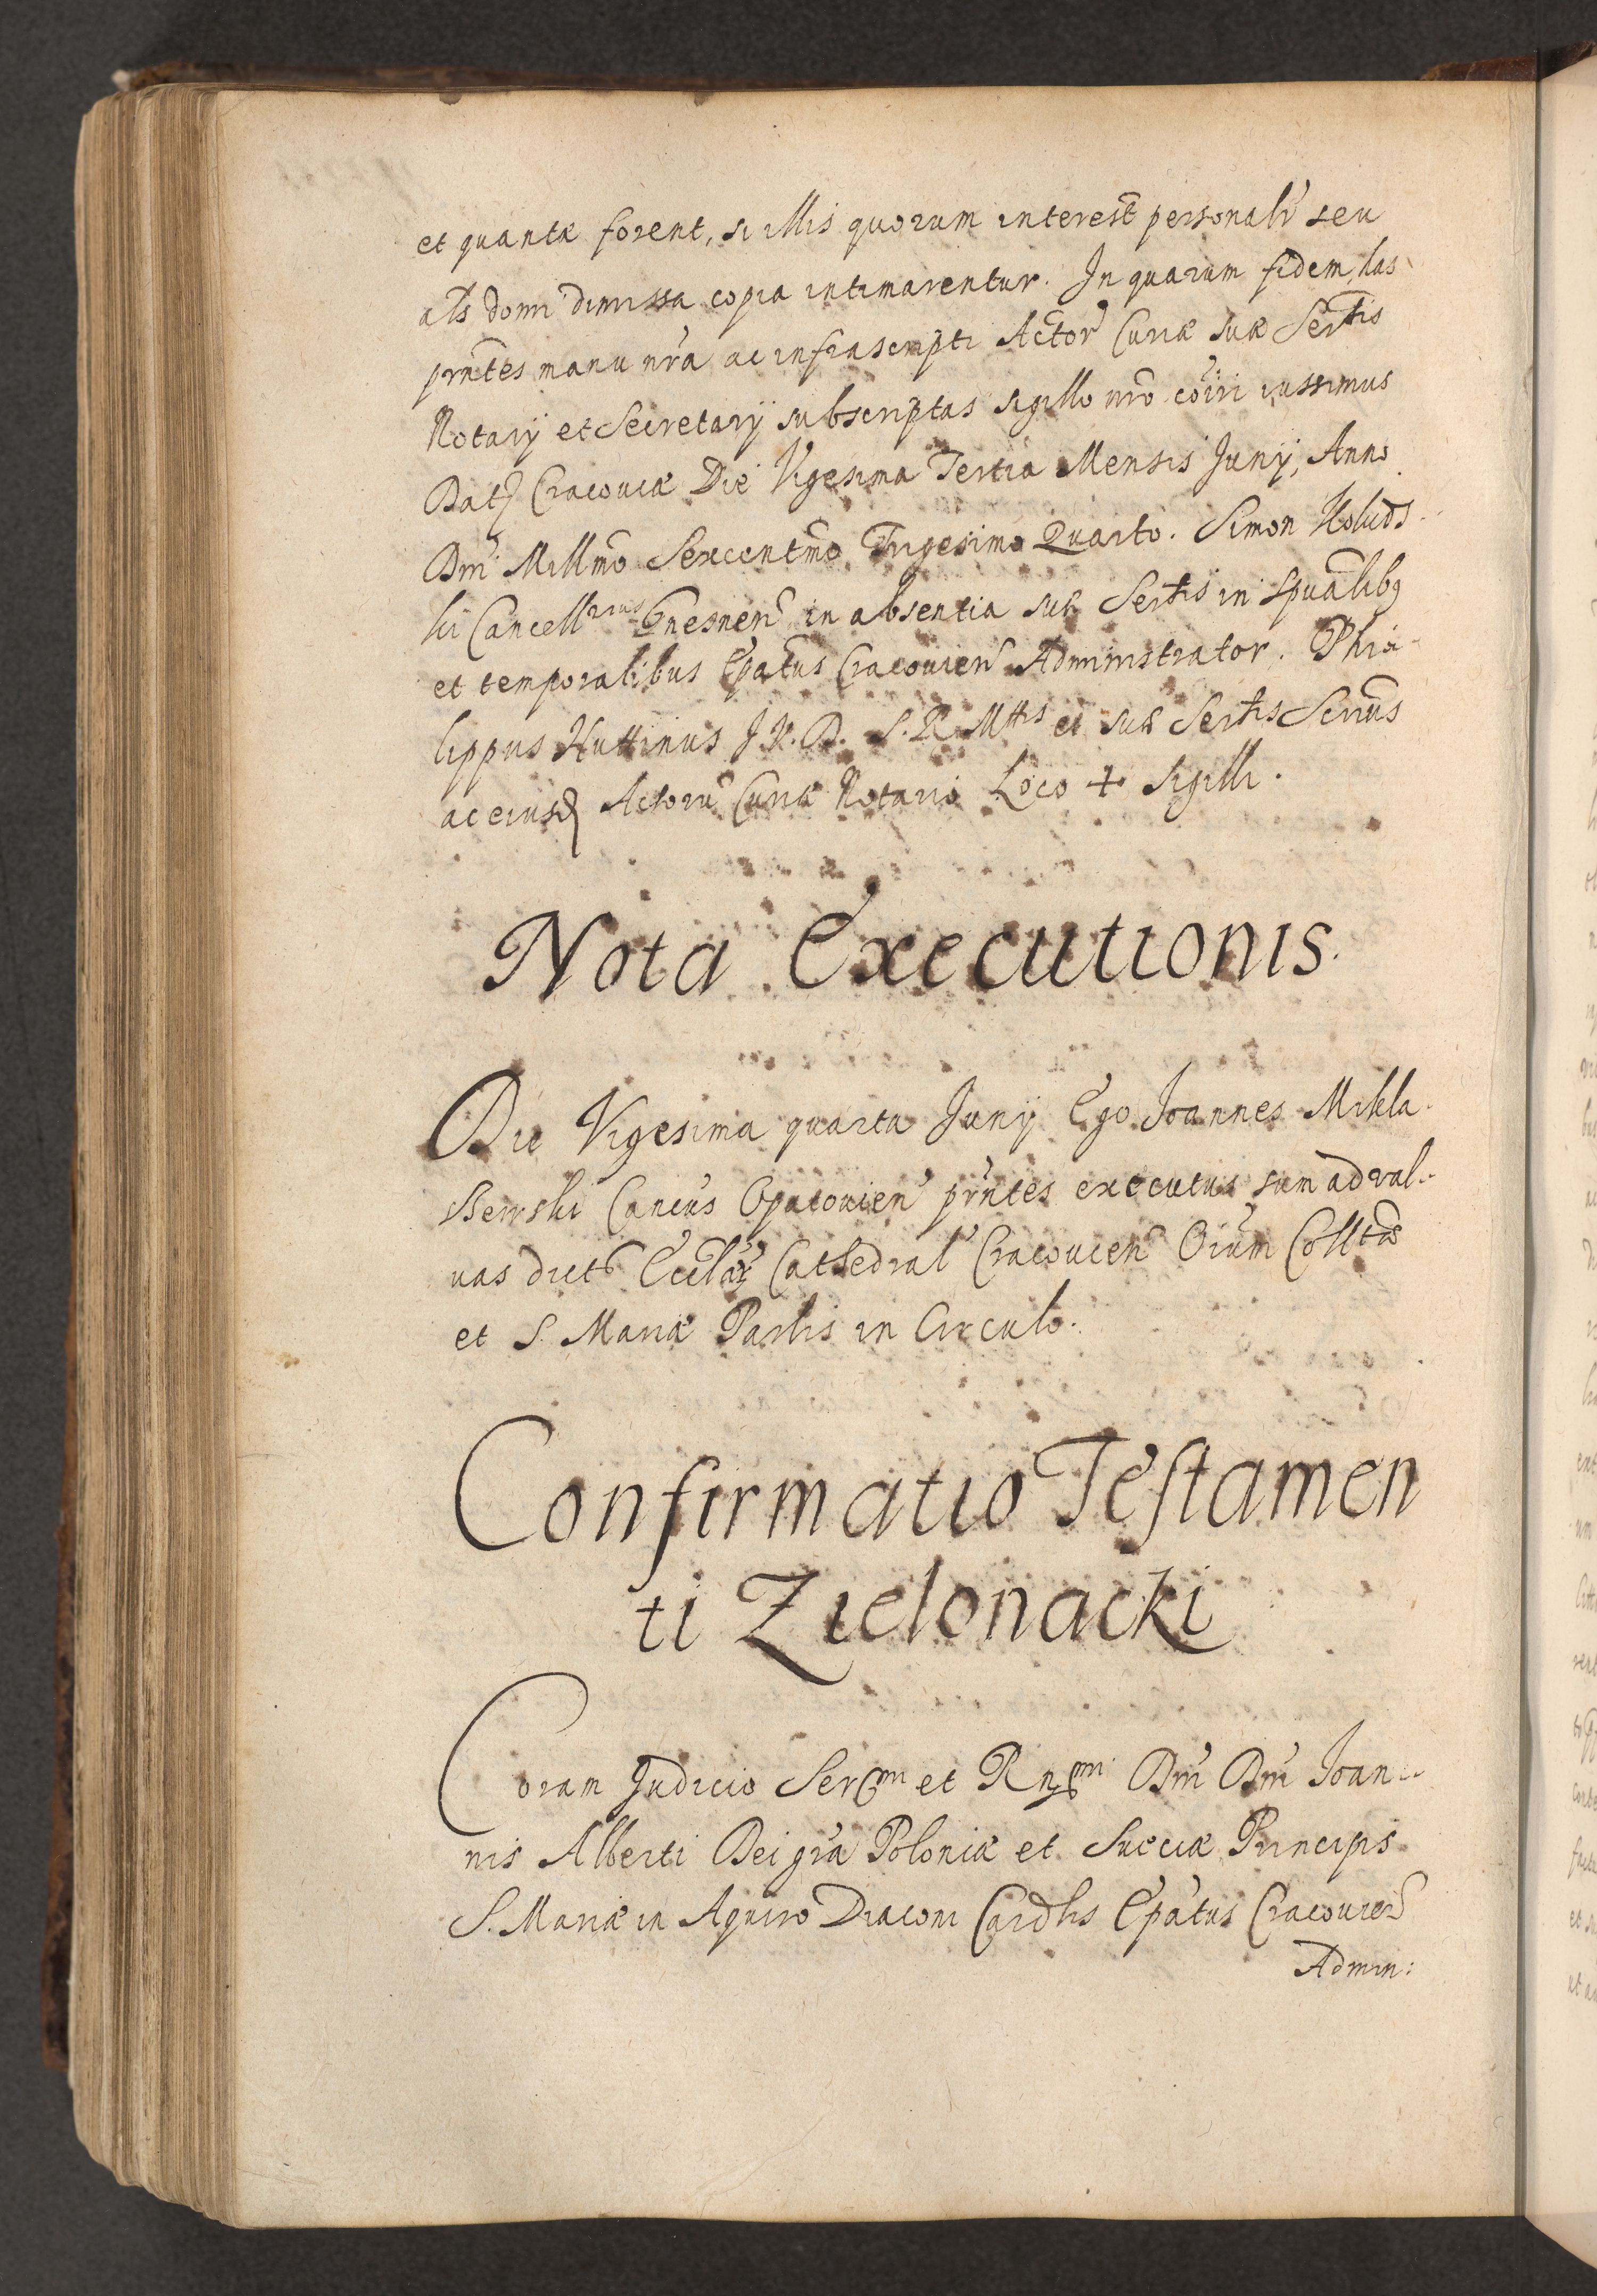 et quantæ forent, si illis quorum interest personalr seu
als domi dimissa copia intimarentur. In quarum fidem, has
prntes manu nra ac infrascripti Actor Curiæ suæ Sertis
Notarij et Secretarij subscriptas sigillo nro coiri iussimus
Dat Cracoviæ Die Vigesima Tertia Mensis Junij, Anno
Dni Millmo Sexcentmo Trigesimo Quarto. Simon Koluds
ki Cancellrius Gnesnen in absentia suæ Sertis in Spualibg
et temporalibus Epatus Cracovien Administrator. Phi
lippus Huttinus J.V.D. S.R.Mttis et suæ Sertis Secrius
ac eiusd Actoru Curiæ Notario Loco + Sigilli.
Nota Executionis.
Die Vigesima quarta Junij Ego Joannes Mikla
szewski Cancus Opatovien prntes executus sum ad val
vas dict Ecclar Cathedral Cracovien Oium Colltæ
et S. Mariæ Parlis in Circulo.
Confirmatio Testamen
ti Zielonacki
Coram Judicio Sermi et Rndmi Dni Dni Joan
nis Alberti Dei gra Poloniæ et Sueciæ Principis
S. Mariæ in Aquiro Diaconi Cardlis Epatus Cracovien
Admin: